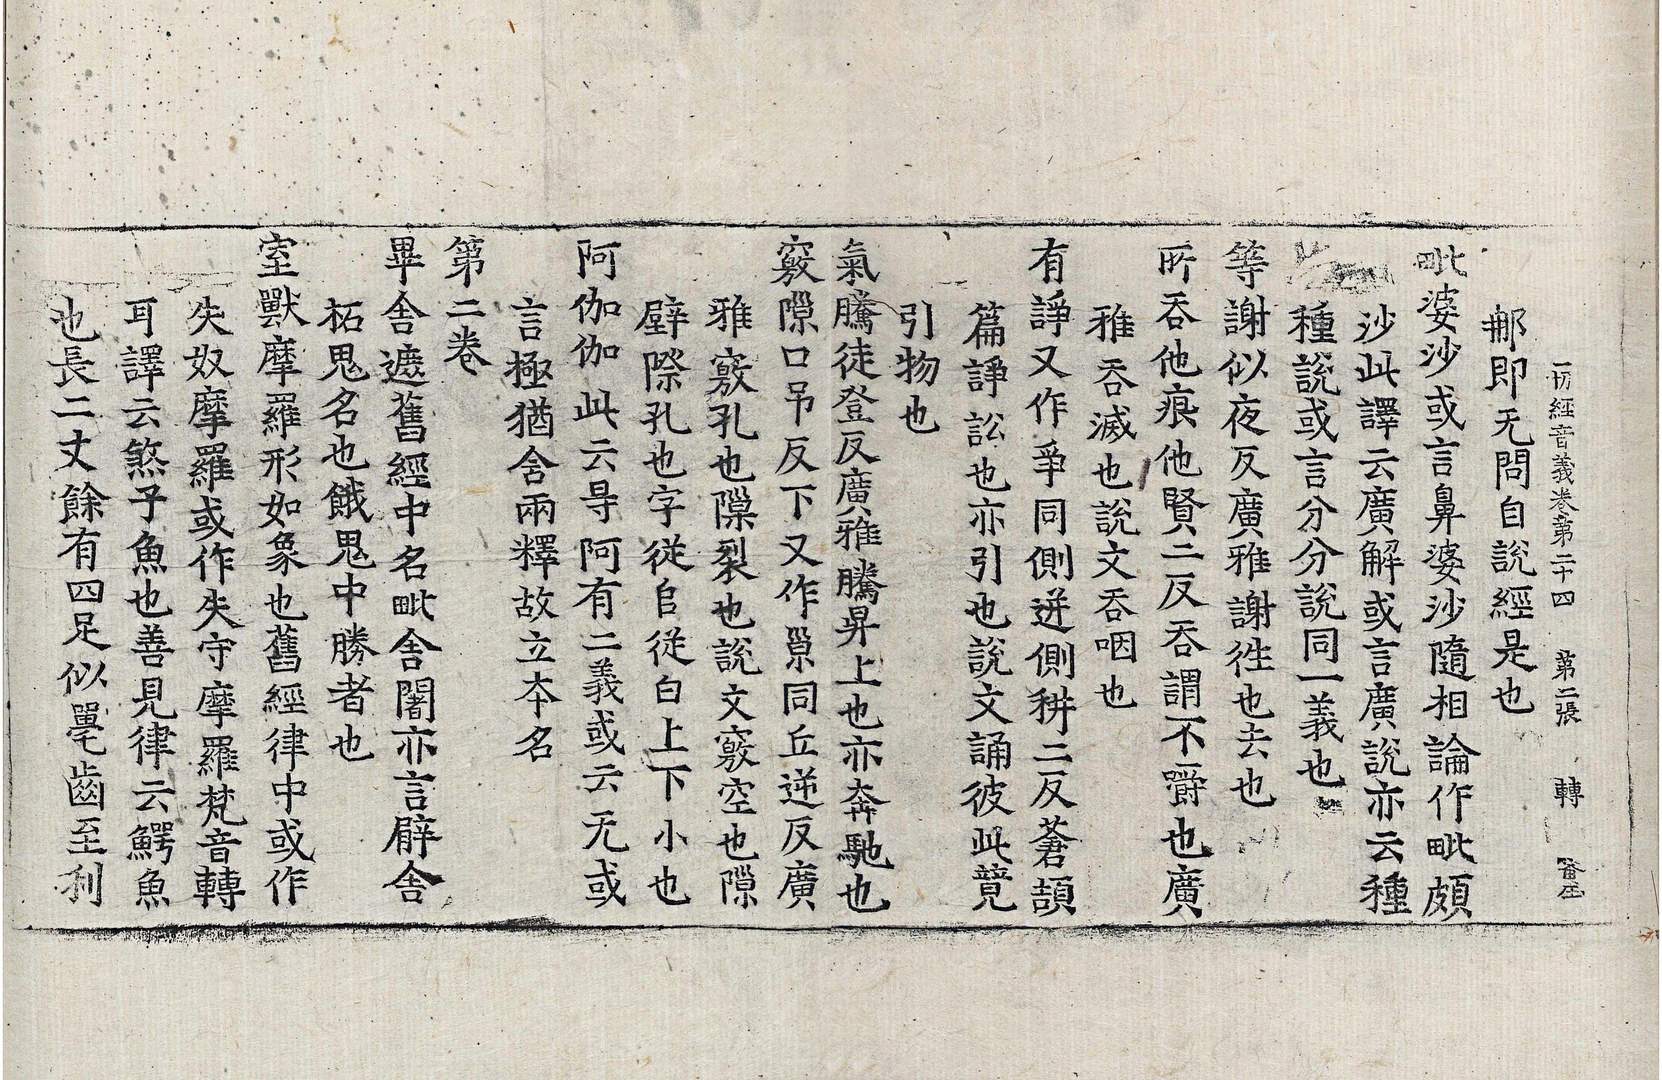 一切經音義卷第二十四　第二張　轉
郍即无問自說經是也
毗婆沙或言鼻婆沙隨相論作毗頗
沙此譯云廣解或言廣說亦云種
種說或言分分說同一義也
等謝似夜反廣雅謝徃也去也
所吞他痕他賢二反吞謂不嚼也廣
雅吞滅也說文吞咽也
有諍又作爭同側迸側耕二反蒼頡
篇諍訟也亦引也說文誦彼此竸
引物也
氣騰徒登反廣雅騰昇上也亦奔馳也
竅隙口吊反下又作𡭴同丘逆反廣
雅竅孔也隟裂也說文竅空也隙
壁際孔也字從𨸏從白上下小也
阿伽伽此云㝵阿有二義或云无或
言極猶含兩釋故立本名
第二卷
畢舍遮舊經中名毗舍闍亦言臂舍
柘鬼名也餓鬼中勝者也
室獸摩羅形如象也舊經律中或作
失奴摩羅或作失守摩羅梵音轉
耳譯云煞子魚也善見律云鰐魚
也長二丈餘有四足似鼉齒至利